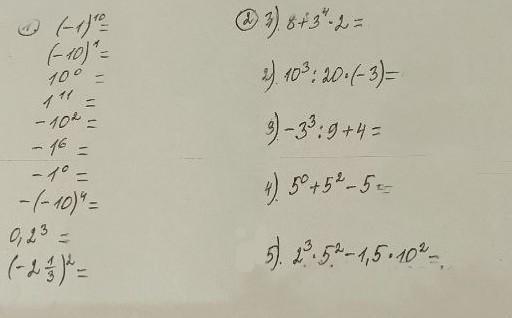 1. (-1)¹⁰=
(-10)¹=
10⁰ =
1¹¹ =
-10² =
-1⁶ =
-1⁰ =
-(-10)⁴=
0,2³ =
(-2 1/3)²=
2 1). 8+3⁴·2=
2). 10³:20·(-3)=
3). -3³:9+4=
4). 5⁰+5²-5=
5). 2³·5²-1,5·10²=